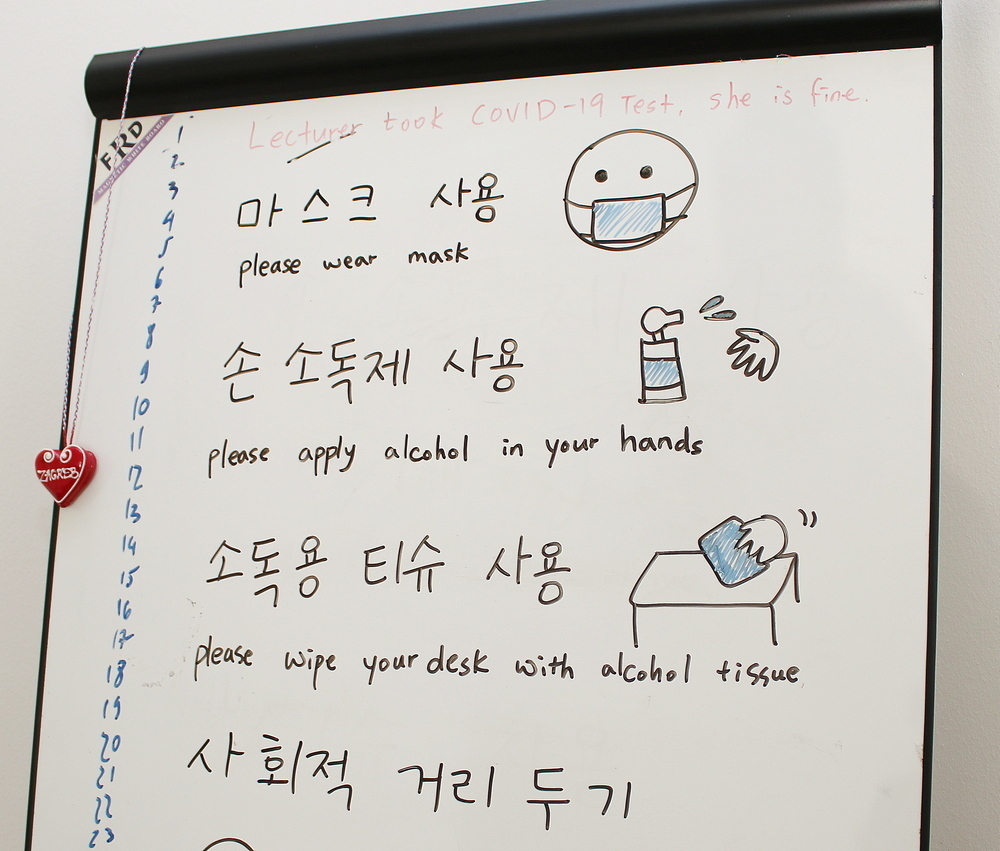 Lecturer took COVID-19 Test, she is fine.
FRD
MAGNETIC WHITE BOARD
마스크 사용
please wear mask
손 소독제 사용
please apply alcohol in your hands
ZAGREB
소독용 티슈 사용
please wipe your desk with alcohol tissue
사회적 거리 두기
1
2
3
4
5
6
7
8
9
10
11
12
13
14
15
16
17
18
19
20
21
22
23